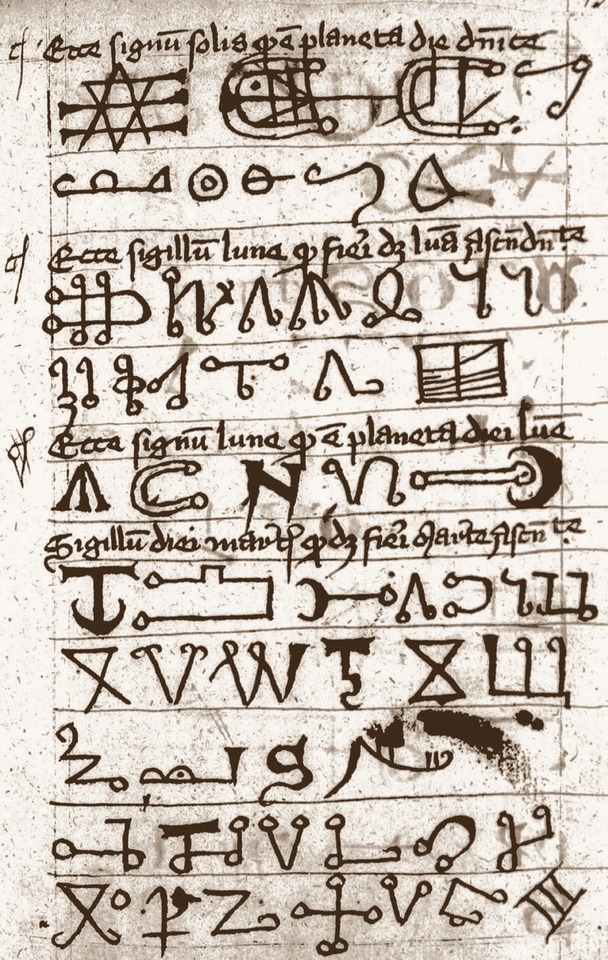 Ecce signū solis q̄ ē planeta die dn̄ice
Ecce sigillū lune q̄ fieri dꝫ lūa ascn̄dn̄te
Ecce signū lune q̄ ē planeta diei lūe
Sigillū diei mart̄ q̄ dꝫ fieri marte ascn̄te